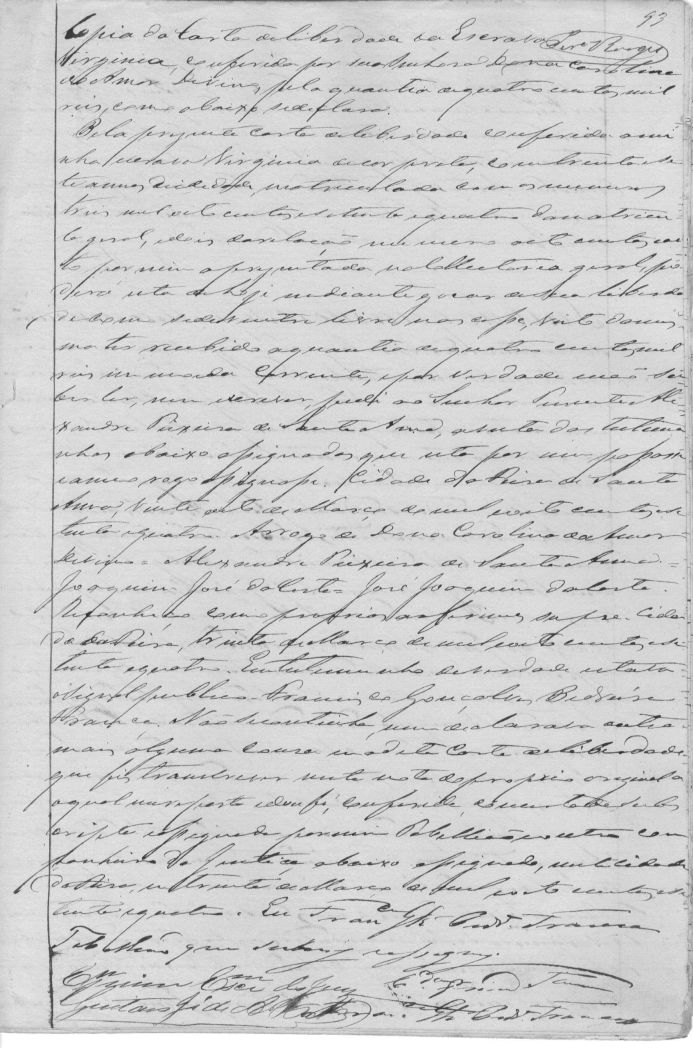 93
Copia da Carta de liberdade da Escrava
Virginia, conferida por sua Senhora Dona Carolina
do Amor Divino, pela quantia de quatro centos mil
reis, como abaixo se declara.
Pela prezente carta de liberdade conferida a mi
nha escrava Virginia de cor preta, com trinta e se
te annos de idade, matriculada com os numeros
tres mil oito centos e setenta e quatro da matricu
la geral, e dois da relação numero oito centos e oi
to por mim aprezentada na Collectoria geral, po
derá esta de hoje em diante gozar de sua liberda
de como se de ventre livre nascesse, visto da mes
ma ter recebido a quantia de quatro centos mil
reis em moeda corrente, e por verdade e não sa
ber ler, nem escrever, pedi ao Senhor Alle
xandre Teixeira de Santa Anna, e sendo das testemu
nhas abaixo assignadas que esta por mim passas
se a meo rogo assignasse. Cidade da Feira de Santa
Anna, vinte oito de Março de mil oito centos e se
tenta e quatro. Arrogo de Dona Carolina do Amor
Divino = Alexandre Teixeira de Santa Anna =
Joaquim José da Costa = José Joaquim da Costa.
Reconheço como proprias as firmas supra. Cida
de da Feira, trinta de Março de mil oito centos e se
tenta e quatro. Em testemunho de verdade estava
o signal publico. Francisco Gonçalves Pedreira
França. Não se continha, nem declarava outra
mais alguma cousa em a dita Carta de liberdade
que fiz transcrever nesta nota do proprio original a
o qual me reporto e dou fé, conferi, concertei, subs
crevi e assignei por mim Tabellião e outro com
panheiro de Justiça abaixo assignado, nesta cidade
da Feira, em trinta de Março de mil oito centos e se
tenta e quatro. Eu Franco Glz Pedra França
Tabellião que subscrevy e assigney.